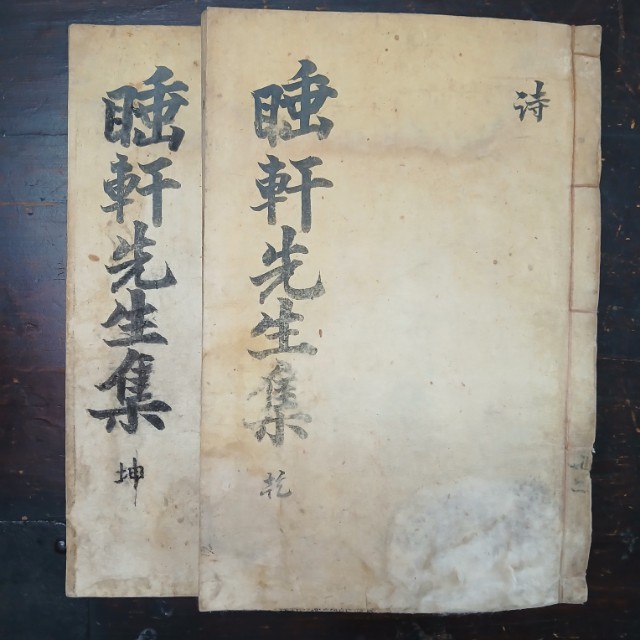 詩
睡軒先生集
乾
睡軒先生集
坤